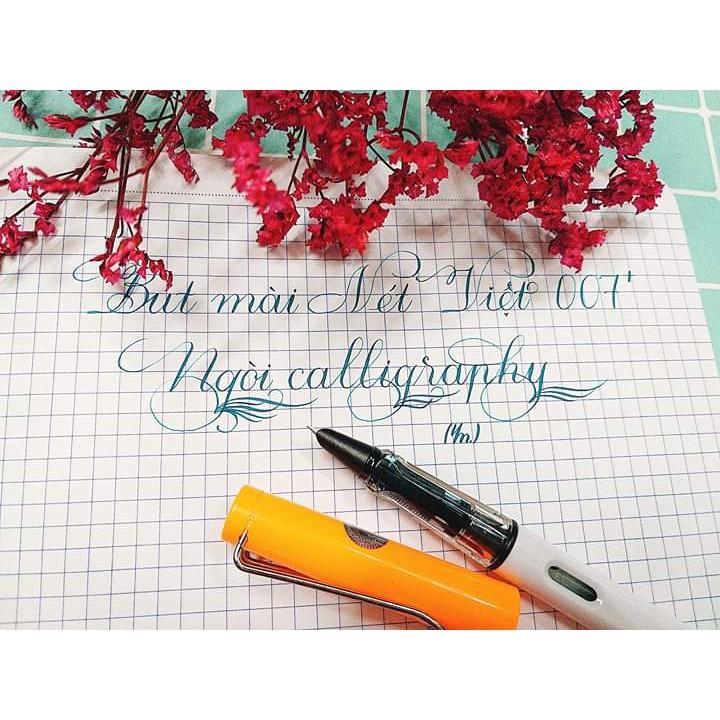 Bút mài Nét Việt 007'
Ngòi calligraphy